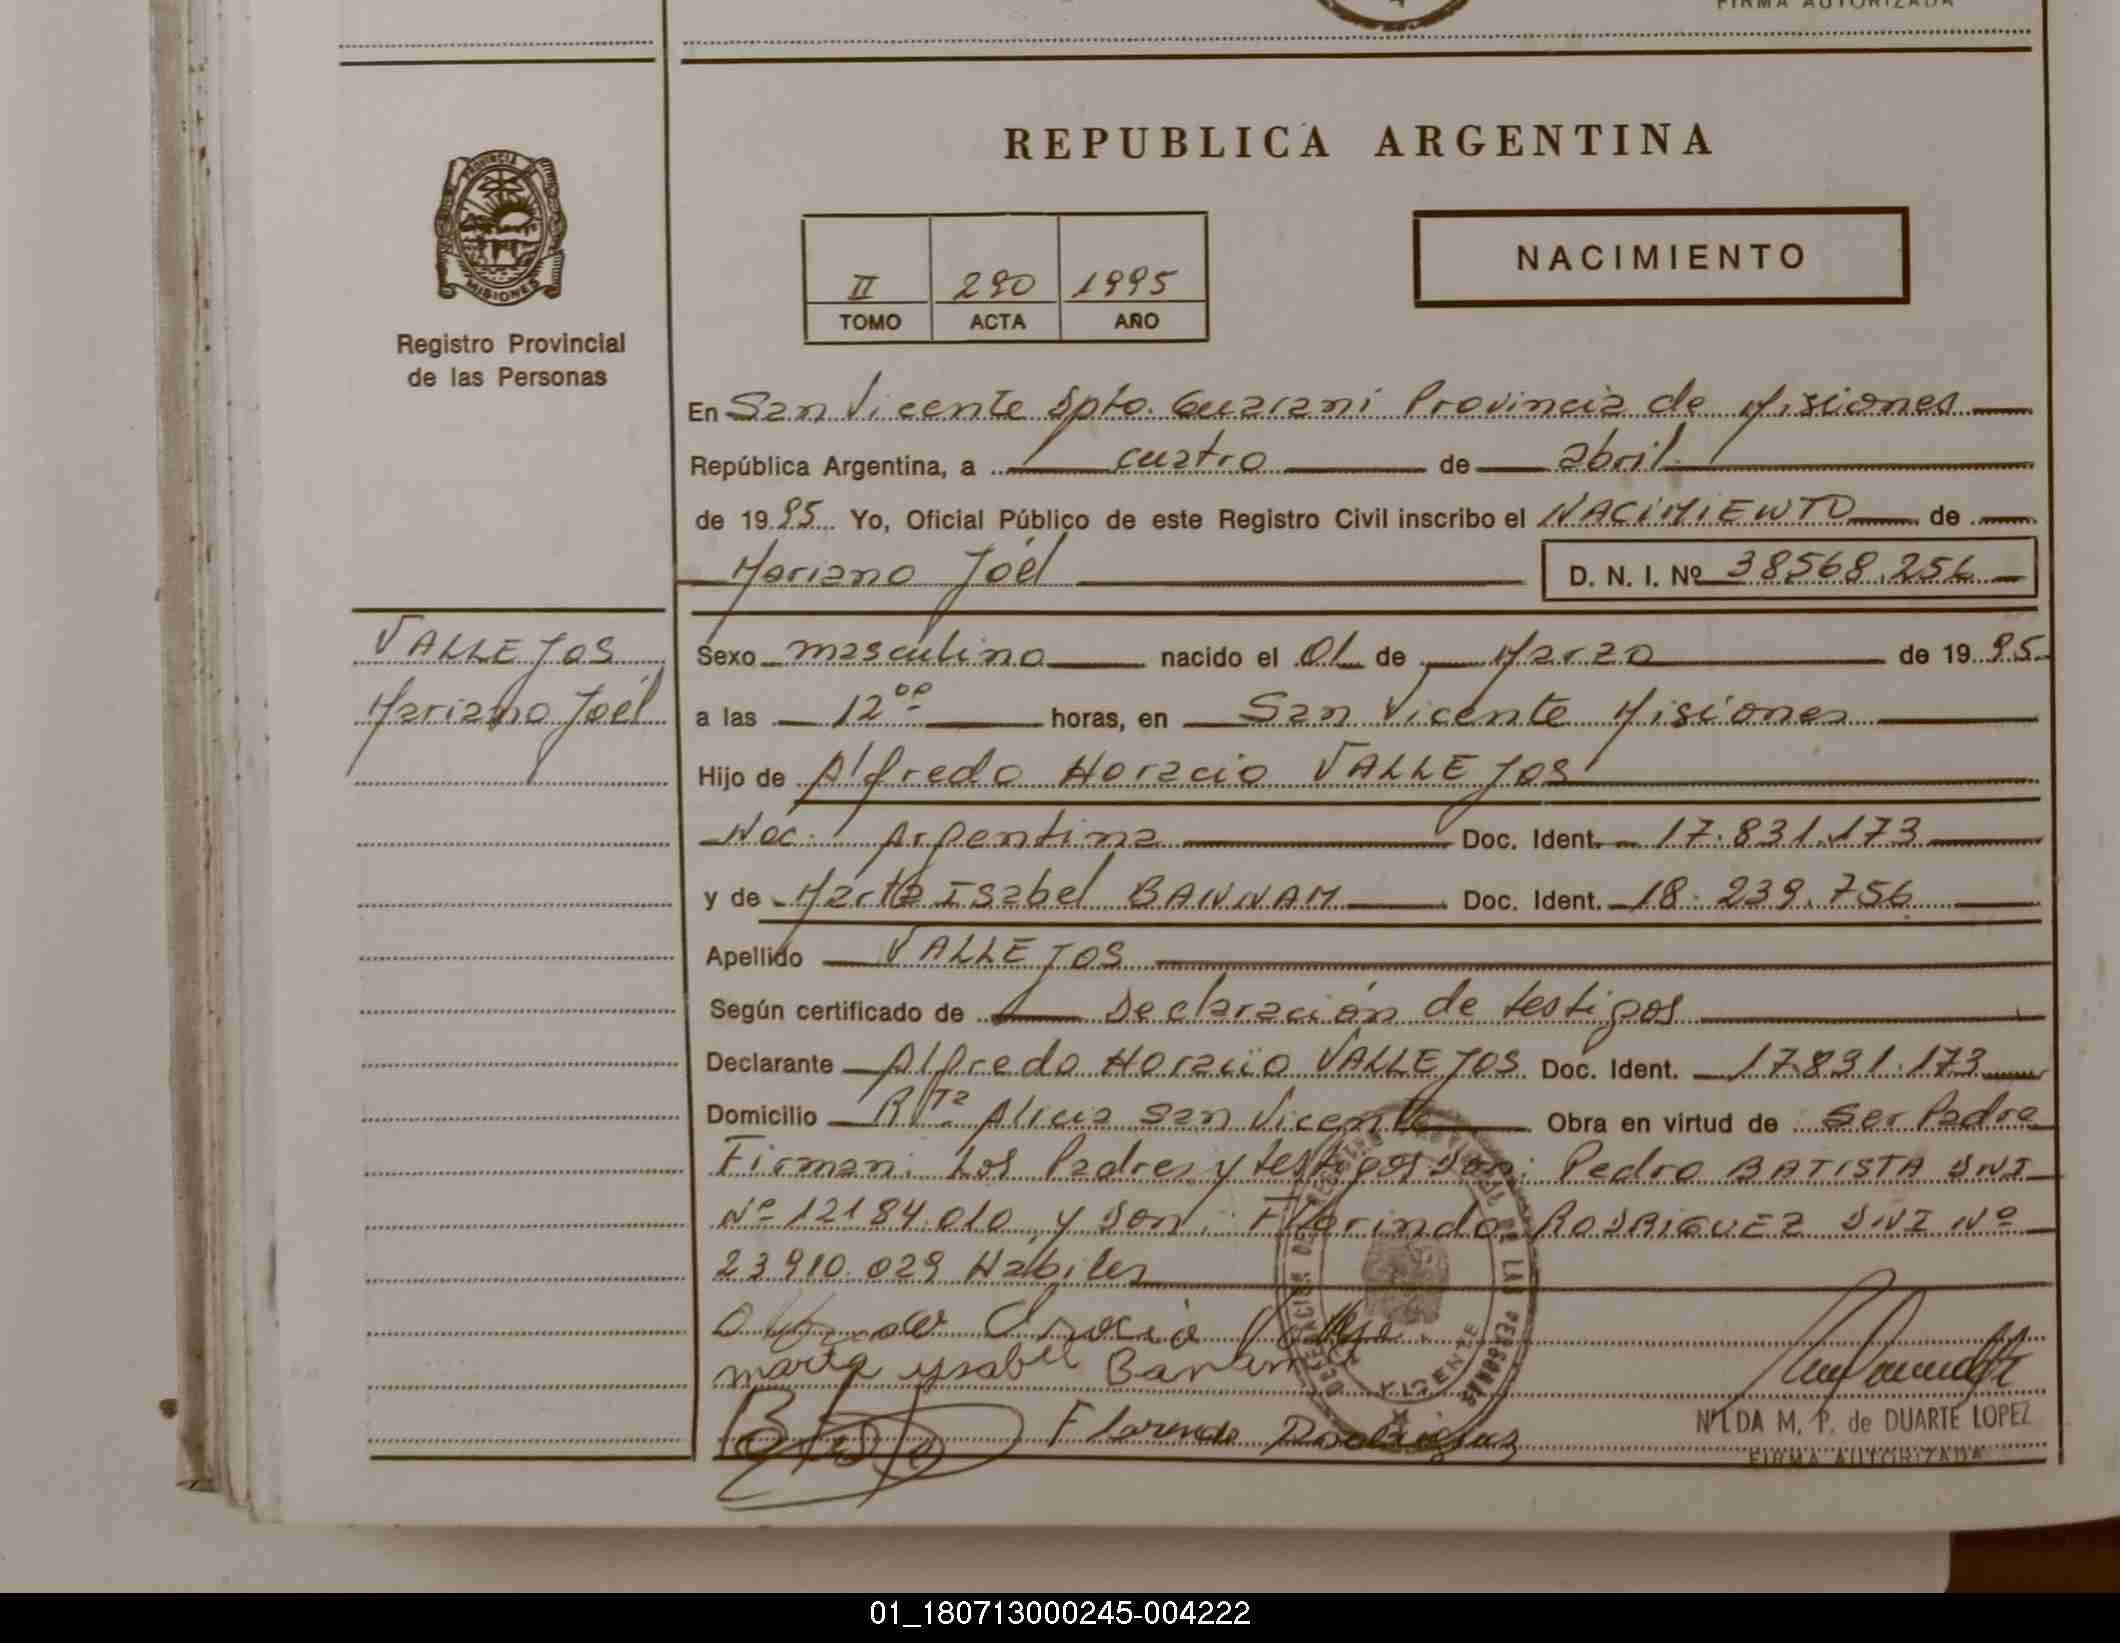 FIRMA AUTORIZADA
REPUBLICA ARGENTINA
PROVINCIA DE
MISIONES
Registro Provincial
de las Personas
II 290 1995
TOMO ACTA AÑO
NACIMIENTO
En San Vicente Dpto. Guarani Provincia de Misiones
República Argentina, a cuatro de abril
de 1995 Yo, Oficial Público de este Registro Civil inscribo el NACIMIENTO de
Mariano Joél
D. N. I. Nº 38568.256
VALLEJOS
Mariano Joél
Sexo masculino nacido el 01 de Marzo de 1995
a las 12 00 horas, en San Vicente Misiones
Hijo de Alfredo Horacio VALLEJOS
Nac. Argentina Doc. Ident. 17.831.173
y de Marta Isabel BANNAM Doc. Ident. 18.239.756
Apellido VALLEJOS
Según certificado de Declaración de testigos
Declarante Alfredo Horacio VALLEJOS Doc. Ident. 17.831.173
Domicilio Alicia San Vicente Obra en virtud de Ser Padre
Firman: Los Padres y testigos Don: Pedro BATISTA DNI
Nº 12184.010 y Don: Florindo RODRIGUEZ DNI Nº
23910.029 Habiles
marta ysabel
Florindo Rodriguez
DELEGACION DEL REGISTRO PROVINCIAL DE LAS PERSONAS
NILDA M. P. de DUARTE LOPEZ
FIRMA AUTORIZADA
01_180713000245-004222